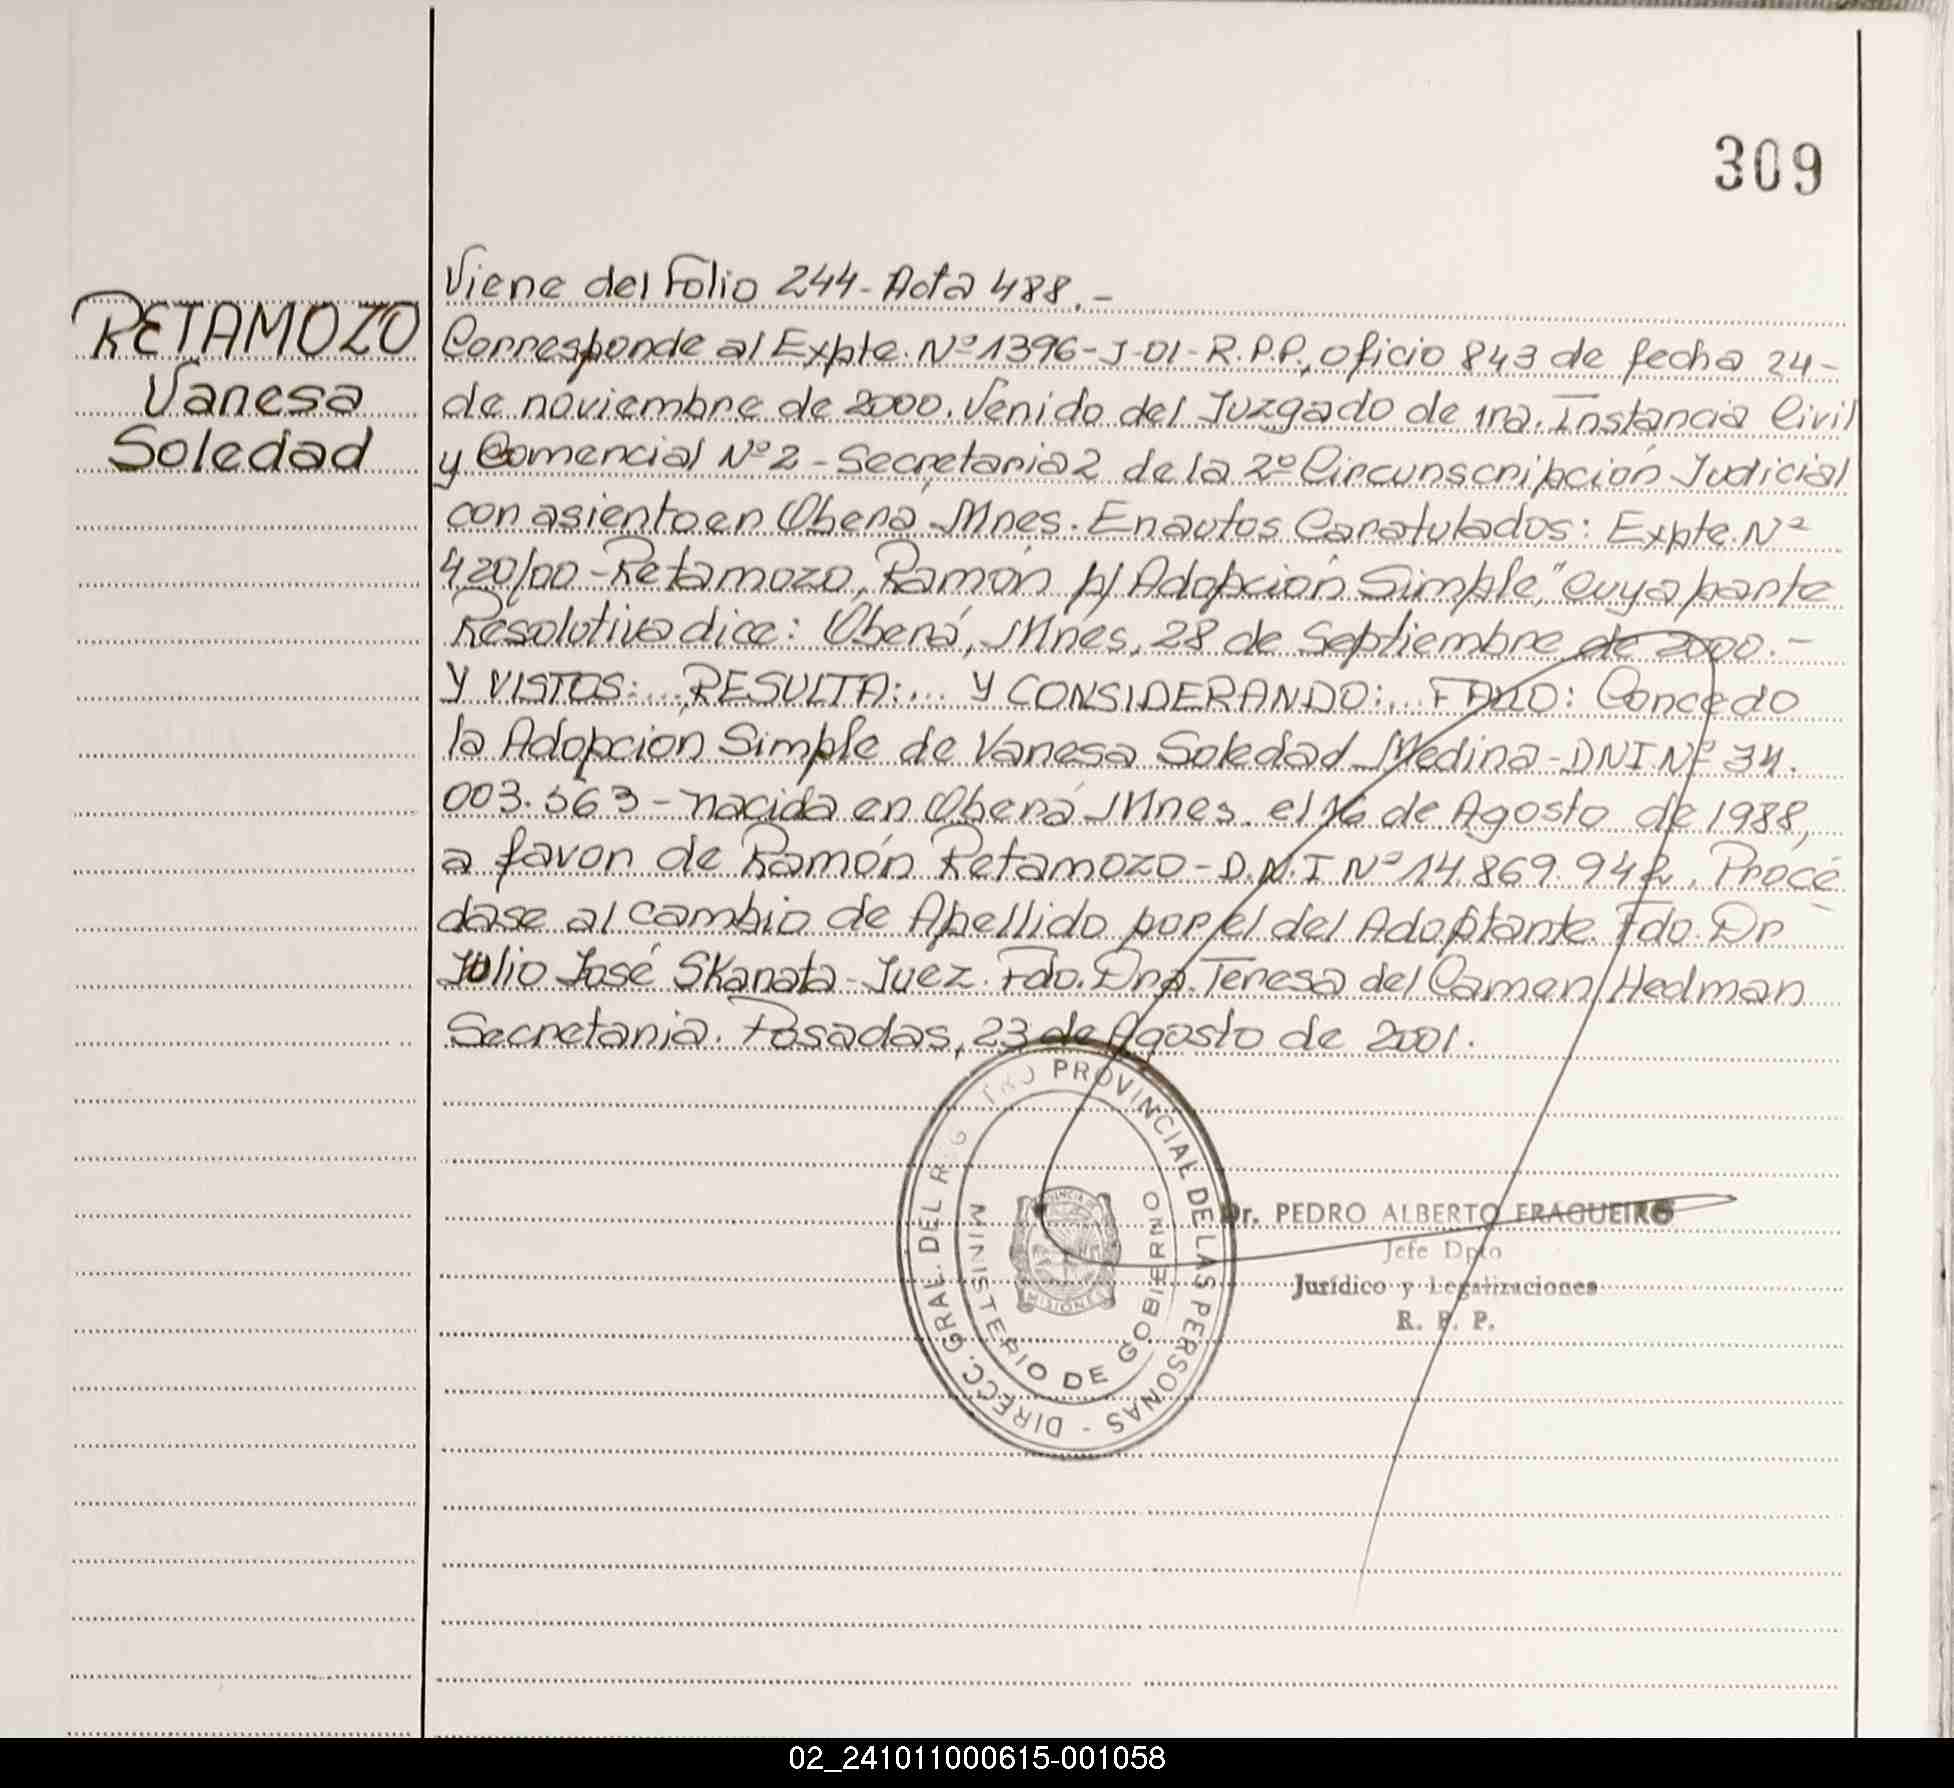 309
RETAMOZO
Vanesa
Soledad
Viene del Folio 244 - Acta 488.-
Corresponde al Expte. Nº 1396-J-01-R.P.P., oficio 843 de fecha 24-
de noviembre de 2000. Venido del Juzgado de 1ra. Instancia Civil
y Comercial Nº 2 - Secretaria 2 de la 2º Circunscripción Judicial
con asiento en Oberá Mnes. En autos Caratulados: Expte. Nº
420/00 - Retamozo, Ramón p/ Adopción Simple," Cuya parte
Resolutiva dice: Oberá, Mnes, 28 de Septiembre de 2000.-
Y VISTOS:... RESULTA:... Y CONSIDERANDO:... FALLO: Concedo
la Adopcion Simple de Vanesa Soledad Medina - DNI Nº 34.
003.563 - nacida en Oberá Mnes. el 16 de Agosto de 1988,
a favor de Ramón Retamozo - D.N.I Nº 14.869.942. Procé
dase al cambio de Apellido por el del Adoptante. Fdo. Dr
Julio José Skanata - Juez. Fdo. Dra. Teresa del Carmen Hedman
Secretaria. Posadas, 23 de Agosto de 2001.
DIRECC. GRAL. DEL REG TRO PROVINCIAL DE LAS PERSONAS -
MINISTERIO DE GOBIERNO
MISIONES
Dr. PEDRO ALBERTO FRAGUEIRO
Jefe Dpto
Jurídico y Legalizaciones
R. P. P.
02_241011000615-001058